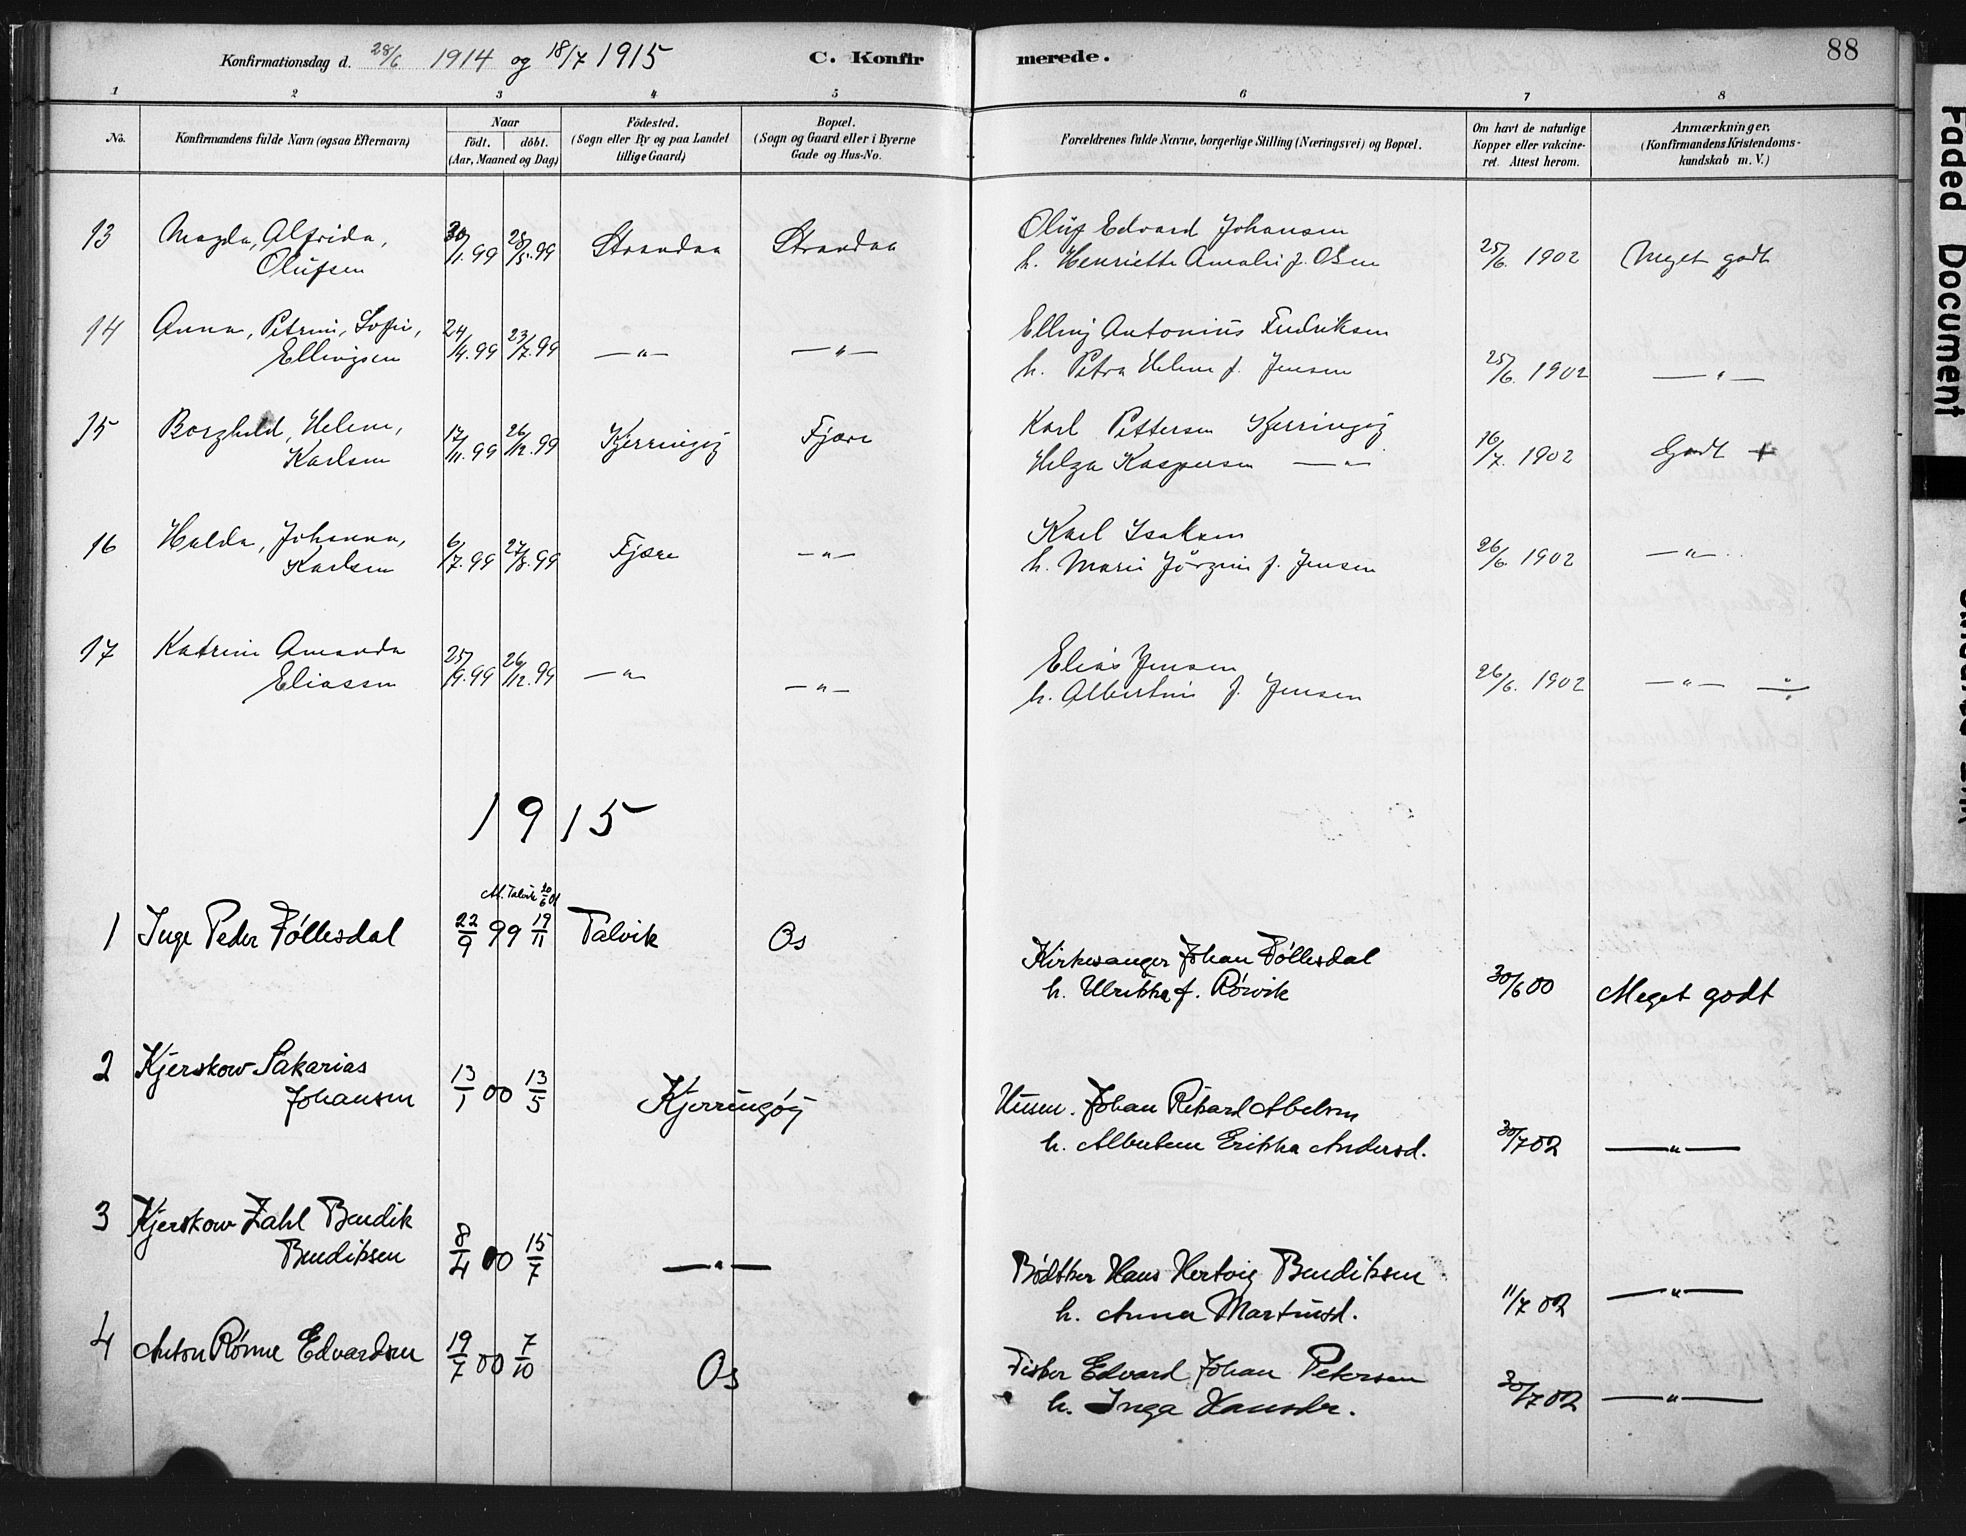 Konfirmationsdag d. 28/6 1914 og 18/7 1915
C. Konfirmerede.
88
1 2 3 4 5 6 7 8
No.
Konfirmandens fulde Navn (ogsaa Efternavn)
Naar
födt. döbt.
(Aar, Maaned og Dag)
Födested.
(Sogn eller By og paa Landet
tillige Gaard)
Bopæl.
(Sogn og Gaard eller i Byerne
Gade og Hus-No.
Forældrenes fulde Navne, borgerlige Stilling (Næringsvei) og Bopæl.
Om havt de naturlige
Kopper eller vakcine-
ret. Attest herom.
Anmærkninger.
(Konfirmandens Kristendoms-
kundskab m. V.)
13 Magda, Alfrida, Olufsen 30/1.99 28/5.99 Strandaa Strandaa
Oluf Edvard Johansen
h. Henriette Amalie f. Olsen 25/6. 1902 Meget godt
14 Anna, Petrine, Sofie, Ellingsen 24/4.99 23/7.99 —„— —„—
Elling Antonius Fredriksen
h. Petra Helene f. Jensen 25/6. 1902 —„—
15 Borghild, Helene, Karlsen 17/11.99 26/12.99 Kjerringøy Fjære
Karl Pettersen Kjerringøy
Helga Kaspersen —„— 16/7. 1902 Godt +
16 Halda, Johanna, Karlsen 6/7.99 27/8.99 Fjære —„—
Karl Isaksen
h. Marie Jörgine f. Jensen 26/6. 1902 —„—
17 Katrine Amanda Eliassen 25/9.99 26/12.99 —„— —„—
Elias Jensen
h. Albertine f. Jensen 26/6. 1902 —„— ÷
1915
At. Talvik 20/6 01
1 Inge Peder Föllesdal 22/9 99 19/11 Talvik Os
Kirkesanger Johan Föllesdal
h. Ulrikka f. Rörvik 30/6 00 Meget godt
2 Kjerskow Sakarias Johansen 13/1 00 13/5 Kjerringøy
Husm. Johan Rikard Abelsen
h. Albertine Erikka Andersd. 30/7 02 —„—
3 Kjerskow Zahl Bendik Bendiksen 8/4 00 15/7 —„—
Bödtker Hans Hertvig Bendiksen
h. Anna Martinsd. 11/7 02 —„—
4 Anton Rönne Edvardsen 19/7 00 7/10 Os
Fisker Edvard Johan Petersen
h. Inga Hansdr. 30/7 02 —„—
Faded Document